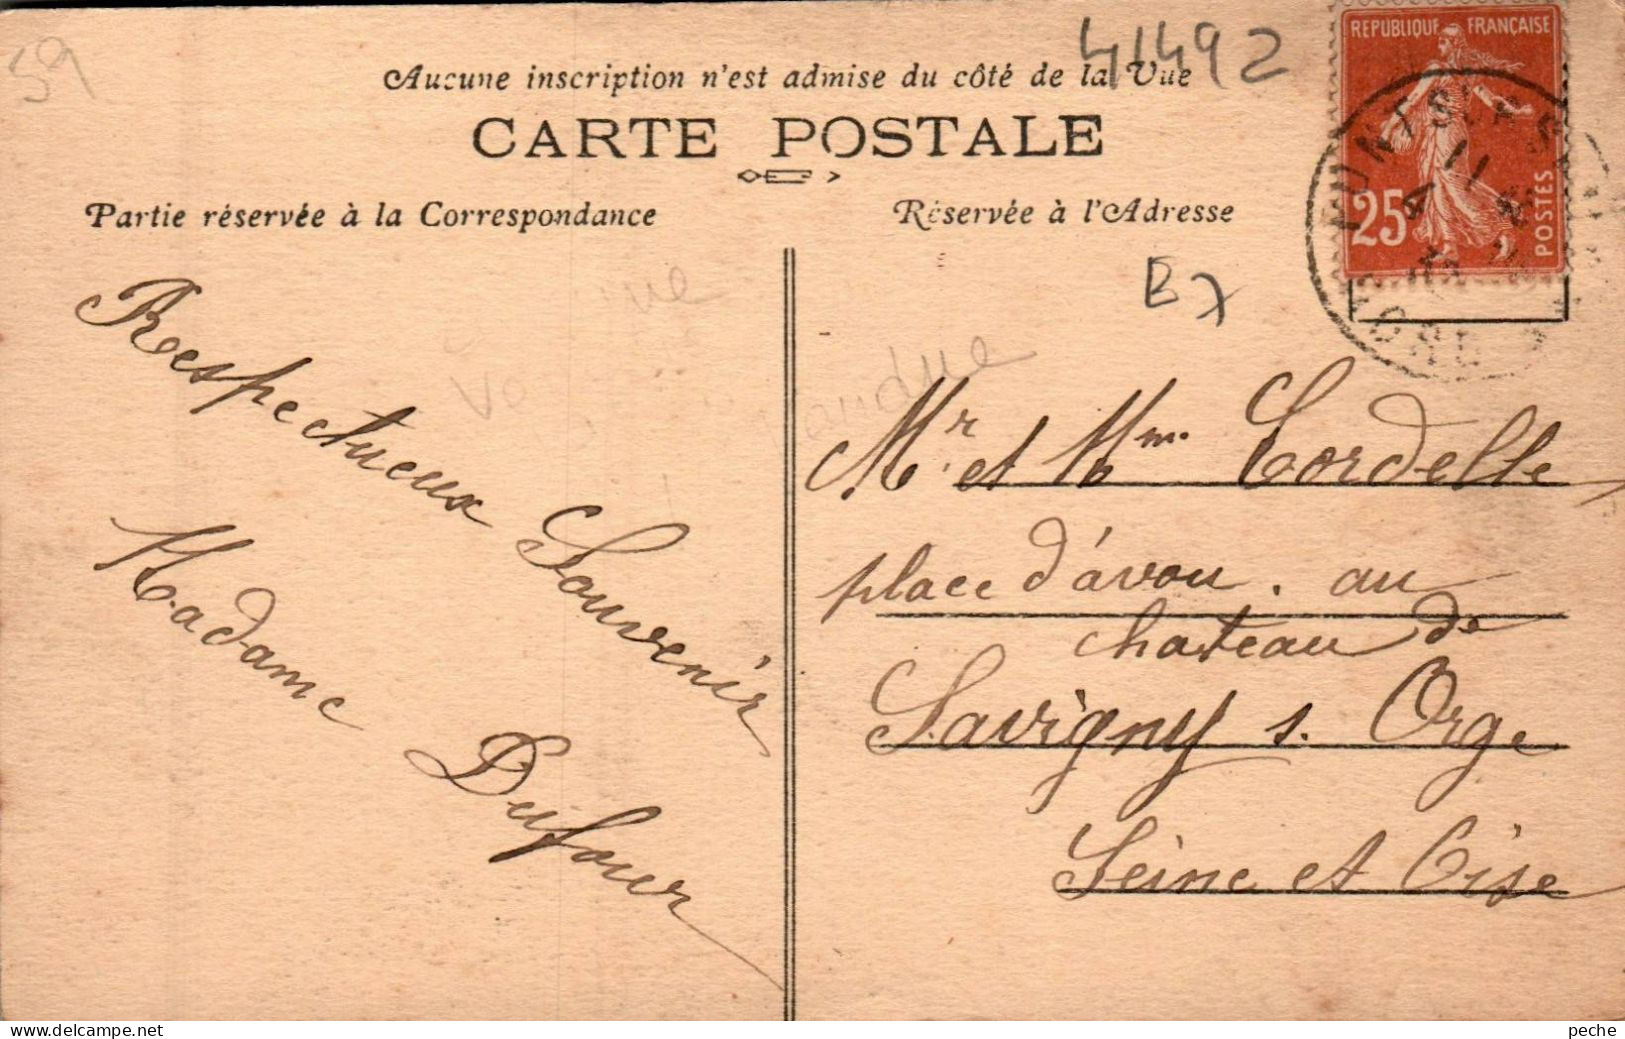 59
41492
Aucune inscription n'est admise du côté de la Vue
CARTE POSTALE
Partie réservée à la Correspondance
Réservée à l'Adresse
RÉPUBLIQUE FRANÇAISE
25
POSTES
B7
Respectueux Souvenir
Madame Dufour
Mr et Mme Cordelle
place d'avou. au
chateau de
Savigny s. Orge
Seine et Oise
www.delcampe.net
peche